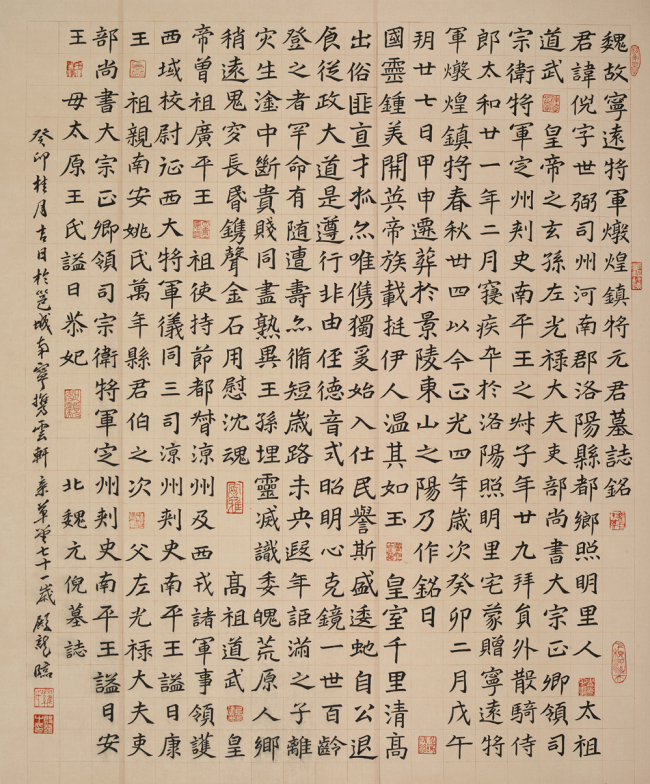 魏故寧遠將軍燉煌鎮將元君墓誌銘
君諱倪字世弼司州河南郡洛陽縣都鄉照明里人 太祖
道武 皇帝之玄孫左光祿大夫吏部尚書大宗正卿領司
宗衛將軍定州刺史南平王之叔子年廿九拜員外散騎侍
郎太和廿一年二月寢疾卒於洛陽照明里宅蒙贈寧遠將
軍燉煌鎮將春秋卅四以今正光四年歲次癸卯二月戊午
玥廿七日甲申遷葬於景陵東山之陽乃作銘曰
國靈鍾美開英帝族載挺伊人溫其如玉 皇室千里清高
出俗匪亶才孤亦唯儁獨爰始入仕民譽斯盛逶虵自公退
食從政大道是遵行非由徑德音式昭明心克鏡一世百齡
登之者罕命有隨遭壽亦脩短歲路未央遐年詎滿之子離
灾生淦中斷貴賤同盡熟異王孫埋靈滅識委魄荒原人鄉
稍遠鬼穸長昬鐫聲金石用慰沈魂 高祖道武 皇
帝曾祖廣平王 祖使持節都督涼州及西戎諸軍事領護
西域校尉征西大將軍儀同三司涼州刺史南平王謚曰康
王 祖親南安姚氏萬年縣君伯之次 父左光祿大夫吏
部尚書大宗正卿領司宗衛將軍定州刺史南平王謚曰安
王 母太原王氏謚曰恭妃 北魏元倪墓誌
癸卯桂月吉日於邕城南寧攜雲軒 草堂七十一歲殿龍臨